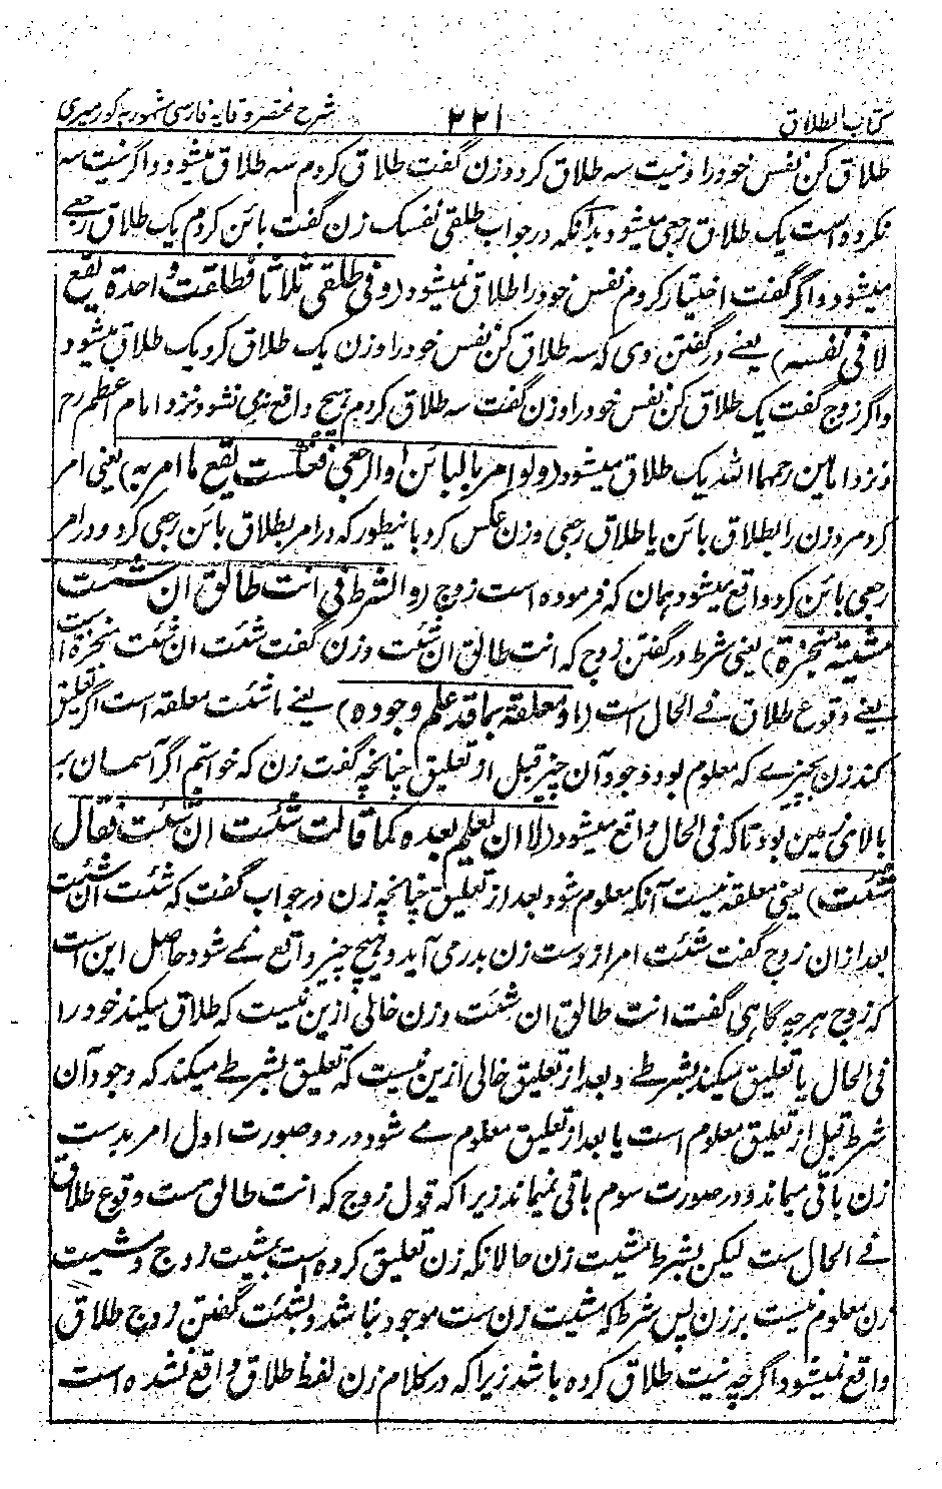 کتاب الطلاق ۲۲۱ شرح مختصر وقایه فارسی مشهور به کور میری
طلاق کن نفس خود را و نیت سه طلاق کرد و زن گفت طلاق کردم سه طلاق میشود و اگر نیت سه
نکرده است یک طلاق رجعی میشود بدانکه در جواب طلقی نفسک زن گفت بائن کردم یک طلاق رجعے
میشود و اگر گفت اختیار کردم نفس خود را طلاق نمیشود (و فی طلقی ثلاثا فطلقت واحدة یقع
لا فی نفسه) یعنے در گفتن وی که سه طلاق کن نفس خود را و زن یک طلاق کرد یک طلاق میشود
و اگر زوج گفت یک طلاق کن نفس خود را و زن گفت سه طلاق کردم هیچ واقع نمی شود نزد امام اعظم رح
و نزد امامین رحمهما الله یک طلاق میشود (ولو امر بالبائن او الرجعی فعکست یقع ما امر به) یعنی امر
کرد مرد زن را بطلاق بائن یا طلاق رجعی و زن عکس کرد باینطور که در امر بطلاق بائن رجعی کرد و در امر
رجعی بائن کرد واقع میشود همان که فرموده است زوج (و الشرط فی انت طالق ان شئت
مشیة منجزة) یعنی شرط در گفتن زوج که انت طالق ان شئت و زن گفت شئت ان شئت منجزة است
یعنے وقوع طلاق فے الحال است (او معلقة بما قد علم وجوده) یعنے یا شئت معلقه است اگر تعلیق
کند زن بچیزے که معلوم بود وجود آن چیز قبل از تعلیق چنانچه گفت زن که خواستم اگر آسمان بر
بالای زمین بود تا که فی الحال واقع میشود (لا ان یعلم بعده کما قالت شئت ان شئت فقال
شئت) یعنی معلقه نیست آنکه معلوم شود بعد از تعلیق چنانچه زن در جواب گفت که شئت ان شئت
بعد از ان زوج گفت شئت امر از دست زن بدر می آید و هیچ چیز واقع نمے شود حاصل این است
که زوج هر چه گاهی گفت انت طالق ان شئت و زن خالی ازین نیست که طلاق میکند خود را
فی الحال یا تعلیق میکند بشرطے و بعد از تعلیق خالی ازین نیست که تعلیق بشرطے میکند که وجود آن
شرط قبل از تعلیق معلوم است یا بعد از تعلیق معلوم مے شود در دو صورت اول امر بدست
زن باقی میماند و در صورت سوم باقی نمیماند زیرا که قول زوج که انت طالق ست وقوع طلاق
فے الحال ست لیکن بشرط مشیت زن حالانکه زن تعلیق کرده است بمشیت زوج و مشیت
زن معلوم نیست بر زن پس شرط که مشیت زن ست موجود نباشد و بشئت گفتن زوج طلاق
واقع نمیشود اگر چه نیت طلاق کرده باشد زیرا که در کلام زن لفظ طلاق واقع نشده است